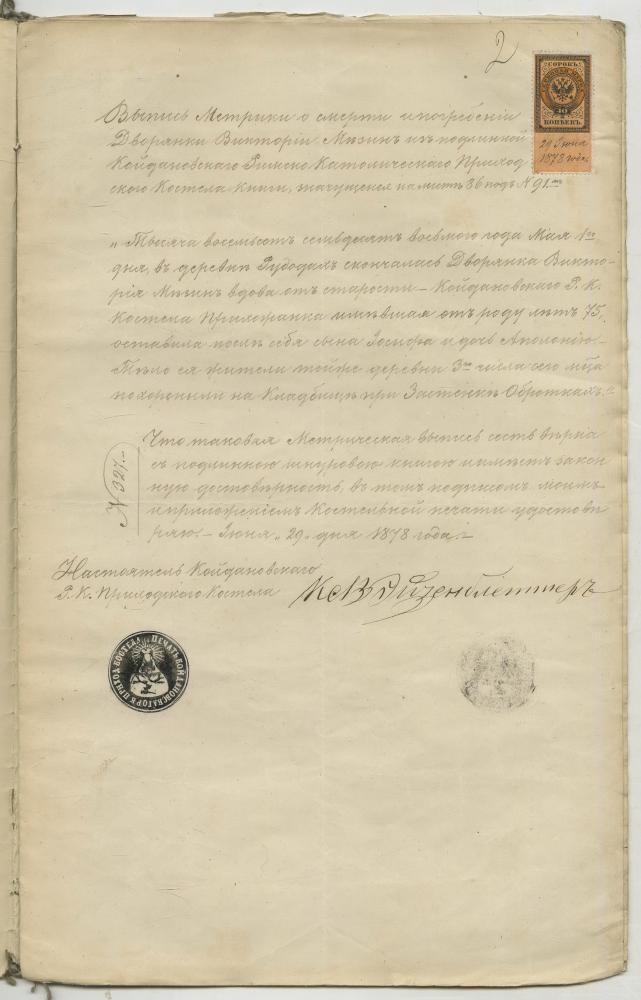 2
СОРОКЪ
40
КОПѢЕКЪ
29 Іюня
1878 года.
Выпись Метрики о смерти и погребеніи
Дворянки Викторіи Мѣзинъ изъ подлинной
Койдановскаго Римско Католическаго Приход
скаго Костела книги, значущейся на листѣ 86 подъ N 91.
„Тысяча восемьсотъ семдесятъ восьмого года Мая 1го
дня, въ деревни Рубодахъ скончалась Дворянка Викто-
рія Мѣзинъ вдова отъ старости – Койдановскаго Р. К.
Костела Прихожанка имѣвшая отъ роду лѣтъ 75,
оставила послѣ себя сына Іосифа и дочь Аполонію. –
Тѣло ея жители тойже деревни 3го числа сего мѣца
похоронили на Кладбищѣ при Застѣнкѣ Оброткахъ."
N 327. –
Что таковая Метрическая выпись есть вѣрна
съ подлинною шнуровою книгою и имѣетъ закон
ную достовѣрность, въ томъ подписомъ моимъ
и приложеніемъ Костельной печати удостовѣ
ряю. – Іюня „29„ дня 1878 года. –
Настоятель Койдановскаго
Р. К. Приходскаго Костела
КсВ Айзенблеттеръ
ПЕЧАТЬ КОЙДАНОВСКАГО Р К ПРИХОД. КОСТЕЛА